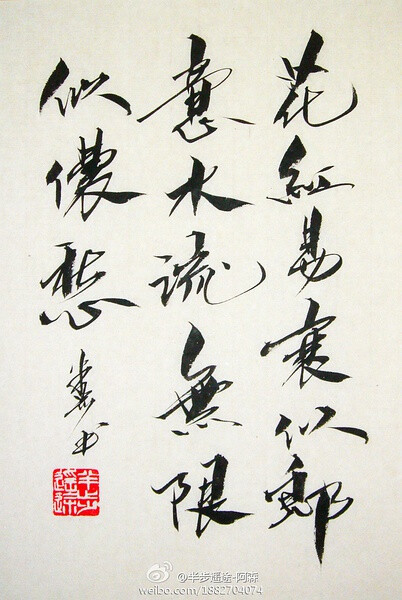 花紅易衰似郎
意水流無限
似儂愁
半步
遥途
@半步遥途-阿森
weibo.com/1882704074